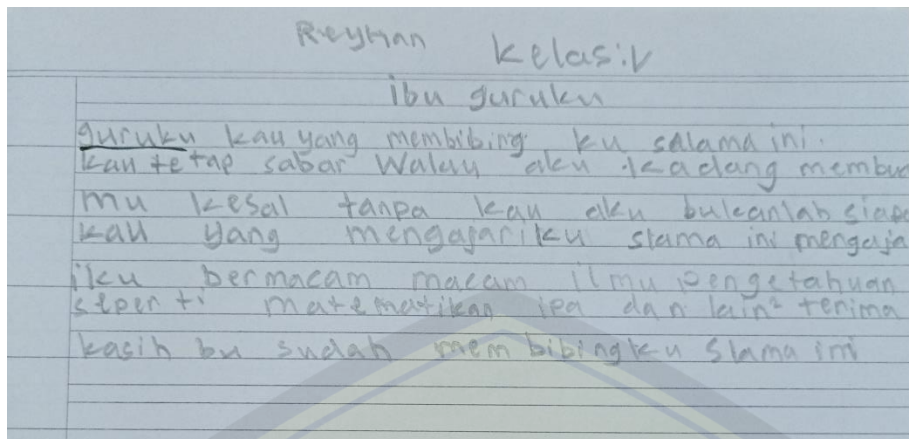 Reyhan Kelas: iv
ibu guruku
guruku kau yang membibing ku salama ini.
kau tetap sabar Walau aku kadang membua
mu kesal tanpa kau aku bukanlah siapa
kau yang mengajariku slama ini mengaja
iku bermacam macam ilmu pengetahuan
seperti matematikan ipa dan lain² terima
kasih bu sudah membibingku Slama ini